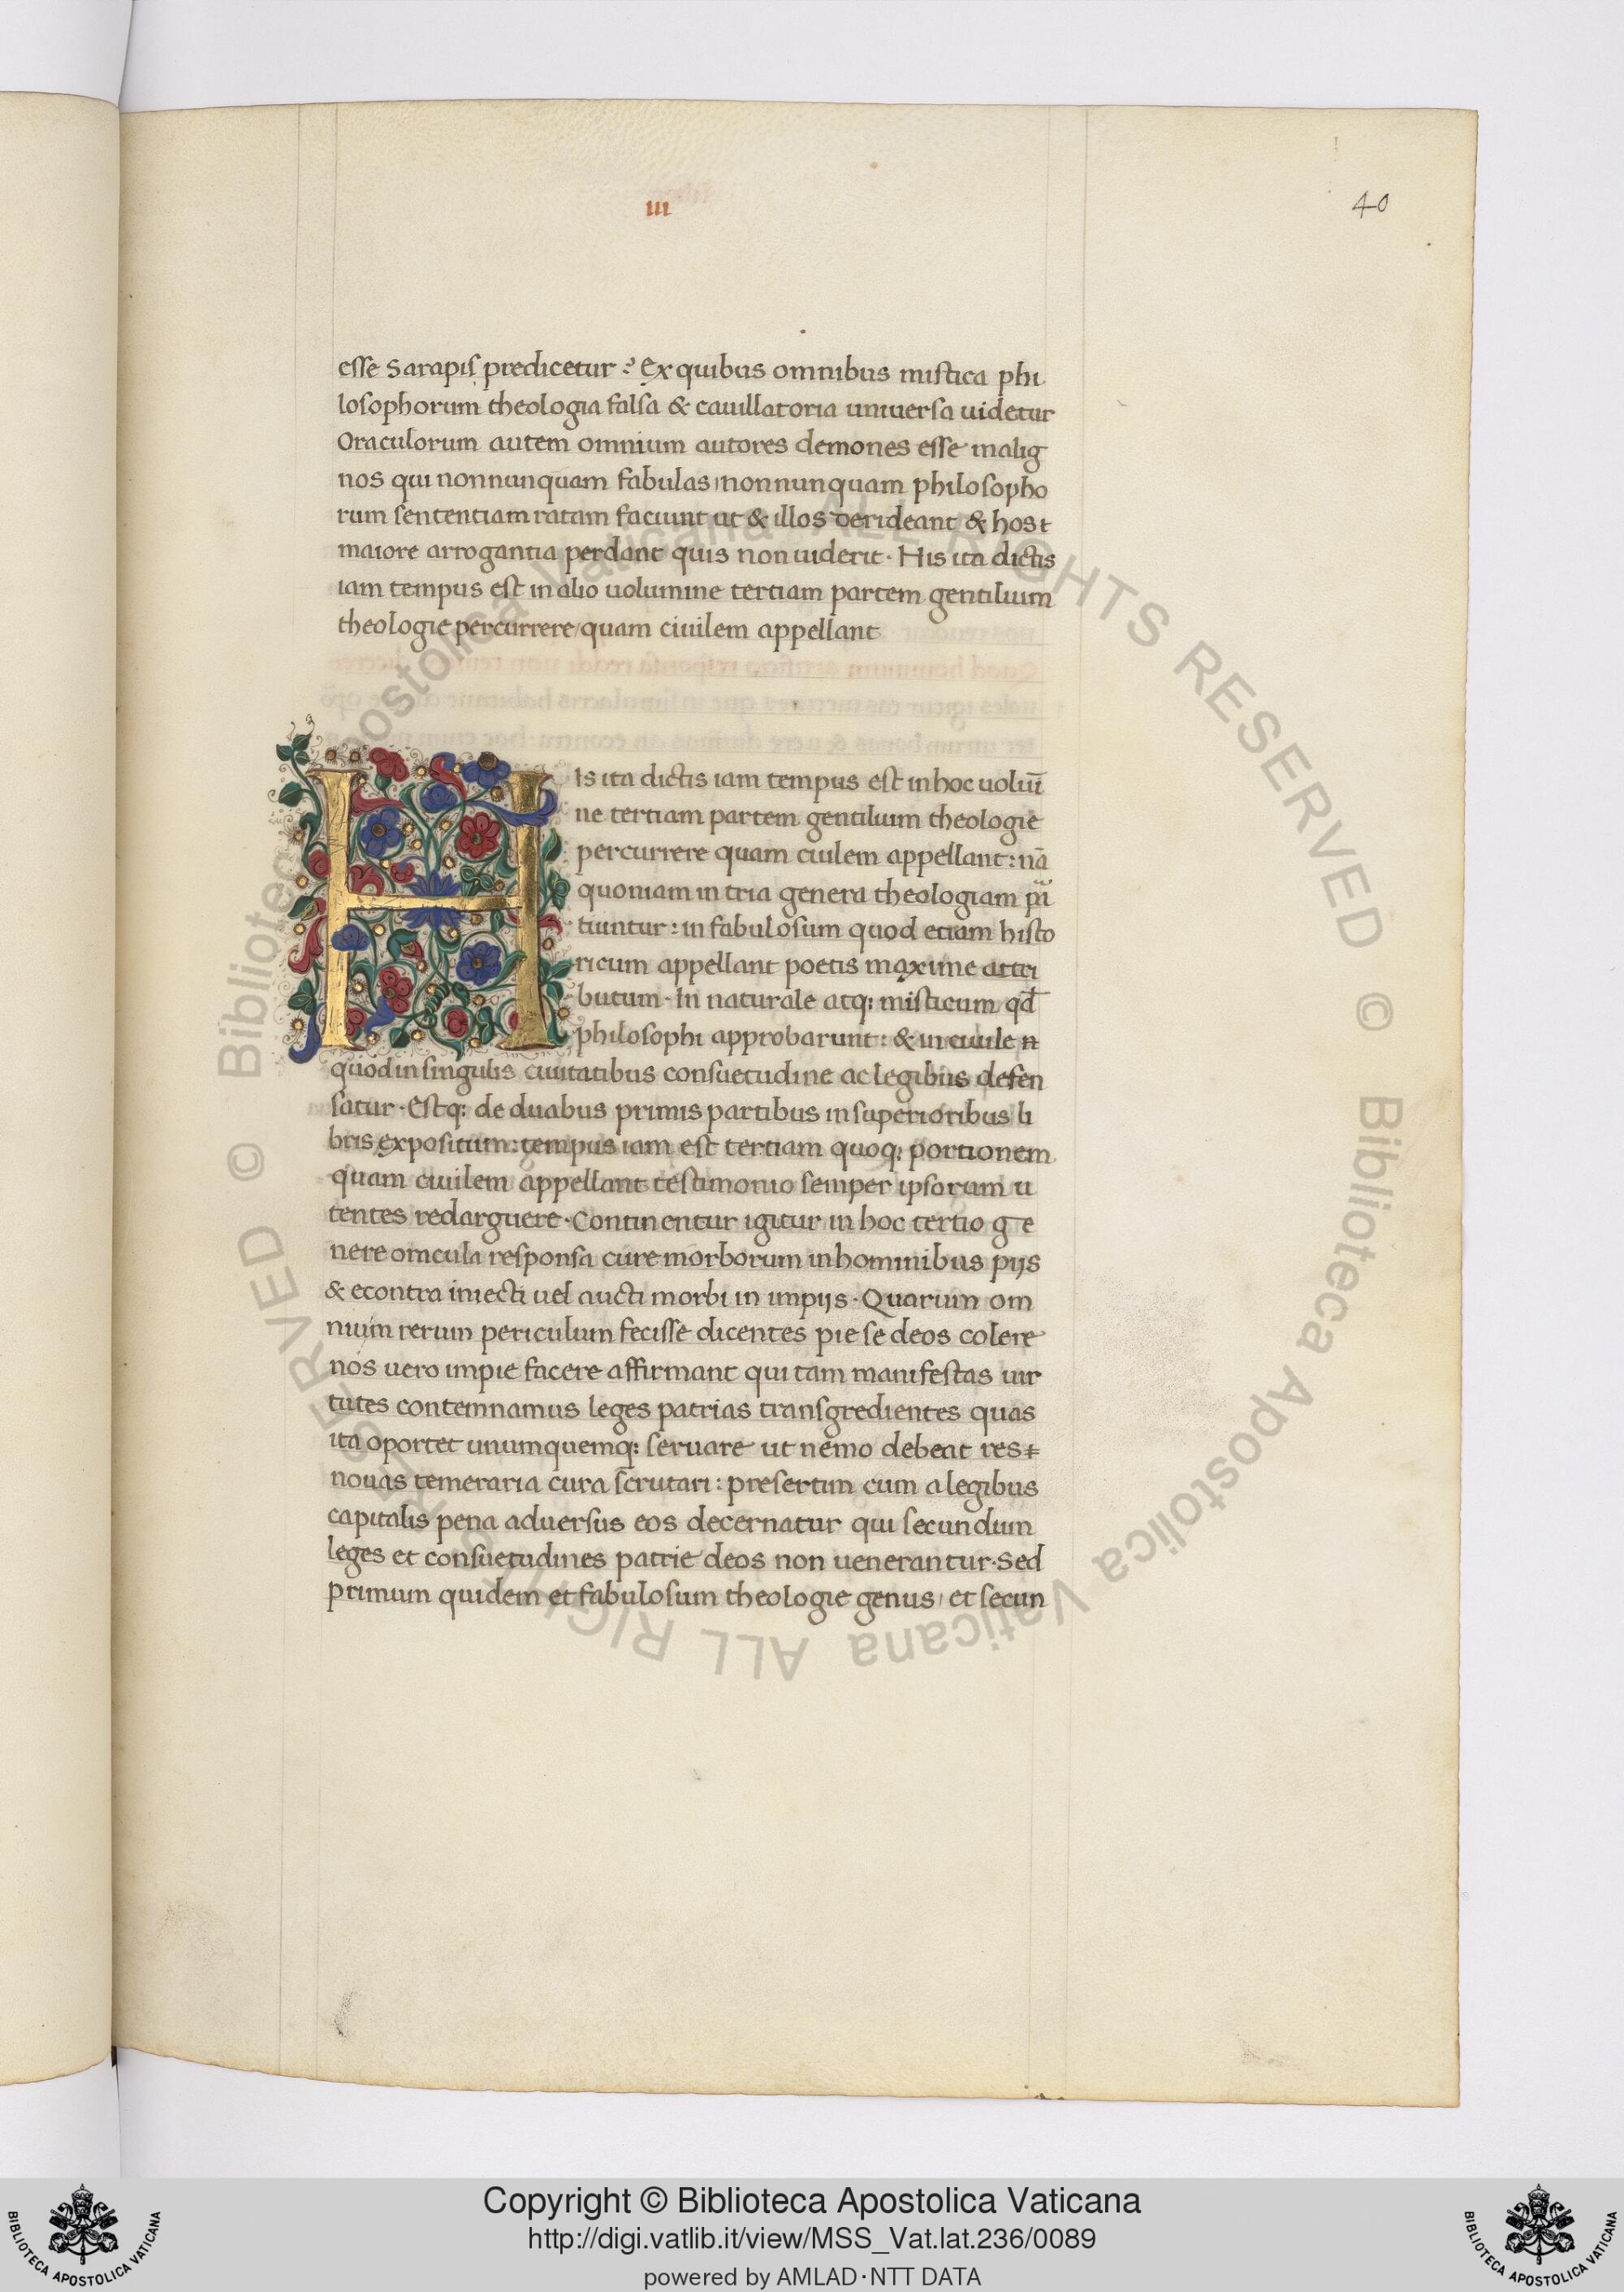 III
40
esse Sarapis predicetur? Ex quibus omnibus mistica phi
losophorum theologia falsa & cauillatoria uniuersa uidetur
Oraculorum autem omnium autores demones esse malig
nos qui nonnunquam fabulas, nonnunquam philosopho
rum sententiam ratam faciunt ut & illos derideant & hos
maiore arrogantia perdant quis non uiderit. His ita dictis
iam tempus est in alio uolumine tertiam partem gentilium
theologie percurrere, quam ciuilem appellant
HIs ita dictis iam tempus est in hoc uolumī
ne tertiam partem gentilium theologie
percurrere quam ciuilem appellant: nā
quoniam in tria genera theologiam
tiuntur: in fabulosum quod etiam histo
ricum appellant poetis maxime attri
butum. In naturale atq; misticum qd̄
philosophi approbarunt: & in ciuile
quod in singulis ciuitatibus consuetudine ac legibus defen
satur. Estq; de duabus primis partibus in superioribus li
bris expositum: tempus iam est tertiam quoq; portionem
quam ciuilem appellant testimonio semper ipsorum u
tentes redarguere. Continentur igitur in hoc tertio ge
nere oracula responsa cure morborum in hominibus pijs
& econtra iniecti uel aucti morbi in impijs. Quarum om
nium rerum periculum fecisse dicentes pie se deos colere
nos uero impie facere affirmant qui tam manifestas uir
tutes contemnamus leges patrias transgredientes quas
ita oportet unumquemq; seruare ut nemo debeat res
nouas temeraria cura scrutari: presertim cum a legibus
capitalis pena aduersus eos decernatur qui secundum
leges et consuetudines patrie deos non uenerantur. Sed
primum quidem et fabulosum theologie genus, et secun
© Biblioteca Apostolica Vaticana ALL RIGHTS RESERVED
© Biblioteca Apostolica Vaticana ALL RIGHTS RESERVED
Copyright © Biblioteca Apostolica Vaticana
http://digi.vatlib.it/view/MSS_Vat.lat.236/0089
powered by AMLAD·NTT DATA
BIBLIOTECA APOSTOLICA VATICANA
BIBLIOTECA APOSTOLICA VATICANA